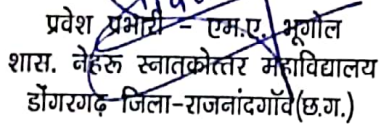 प्रवेश प्रभारी - एम.ए. भूगोल
शास. नेहरू स्नातकोत्तर महाविद्यालय
डोंगरगढ़ जिला-राजनांदगाँव(छ.ग.)